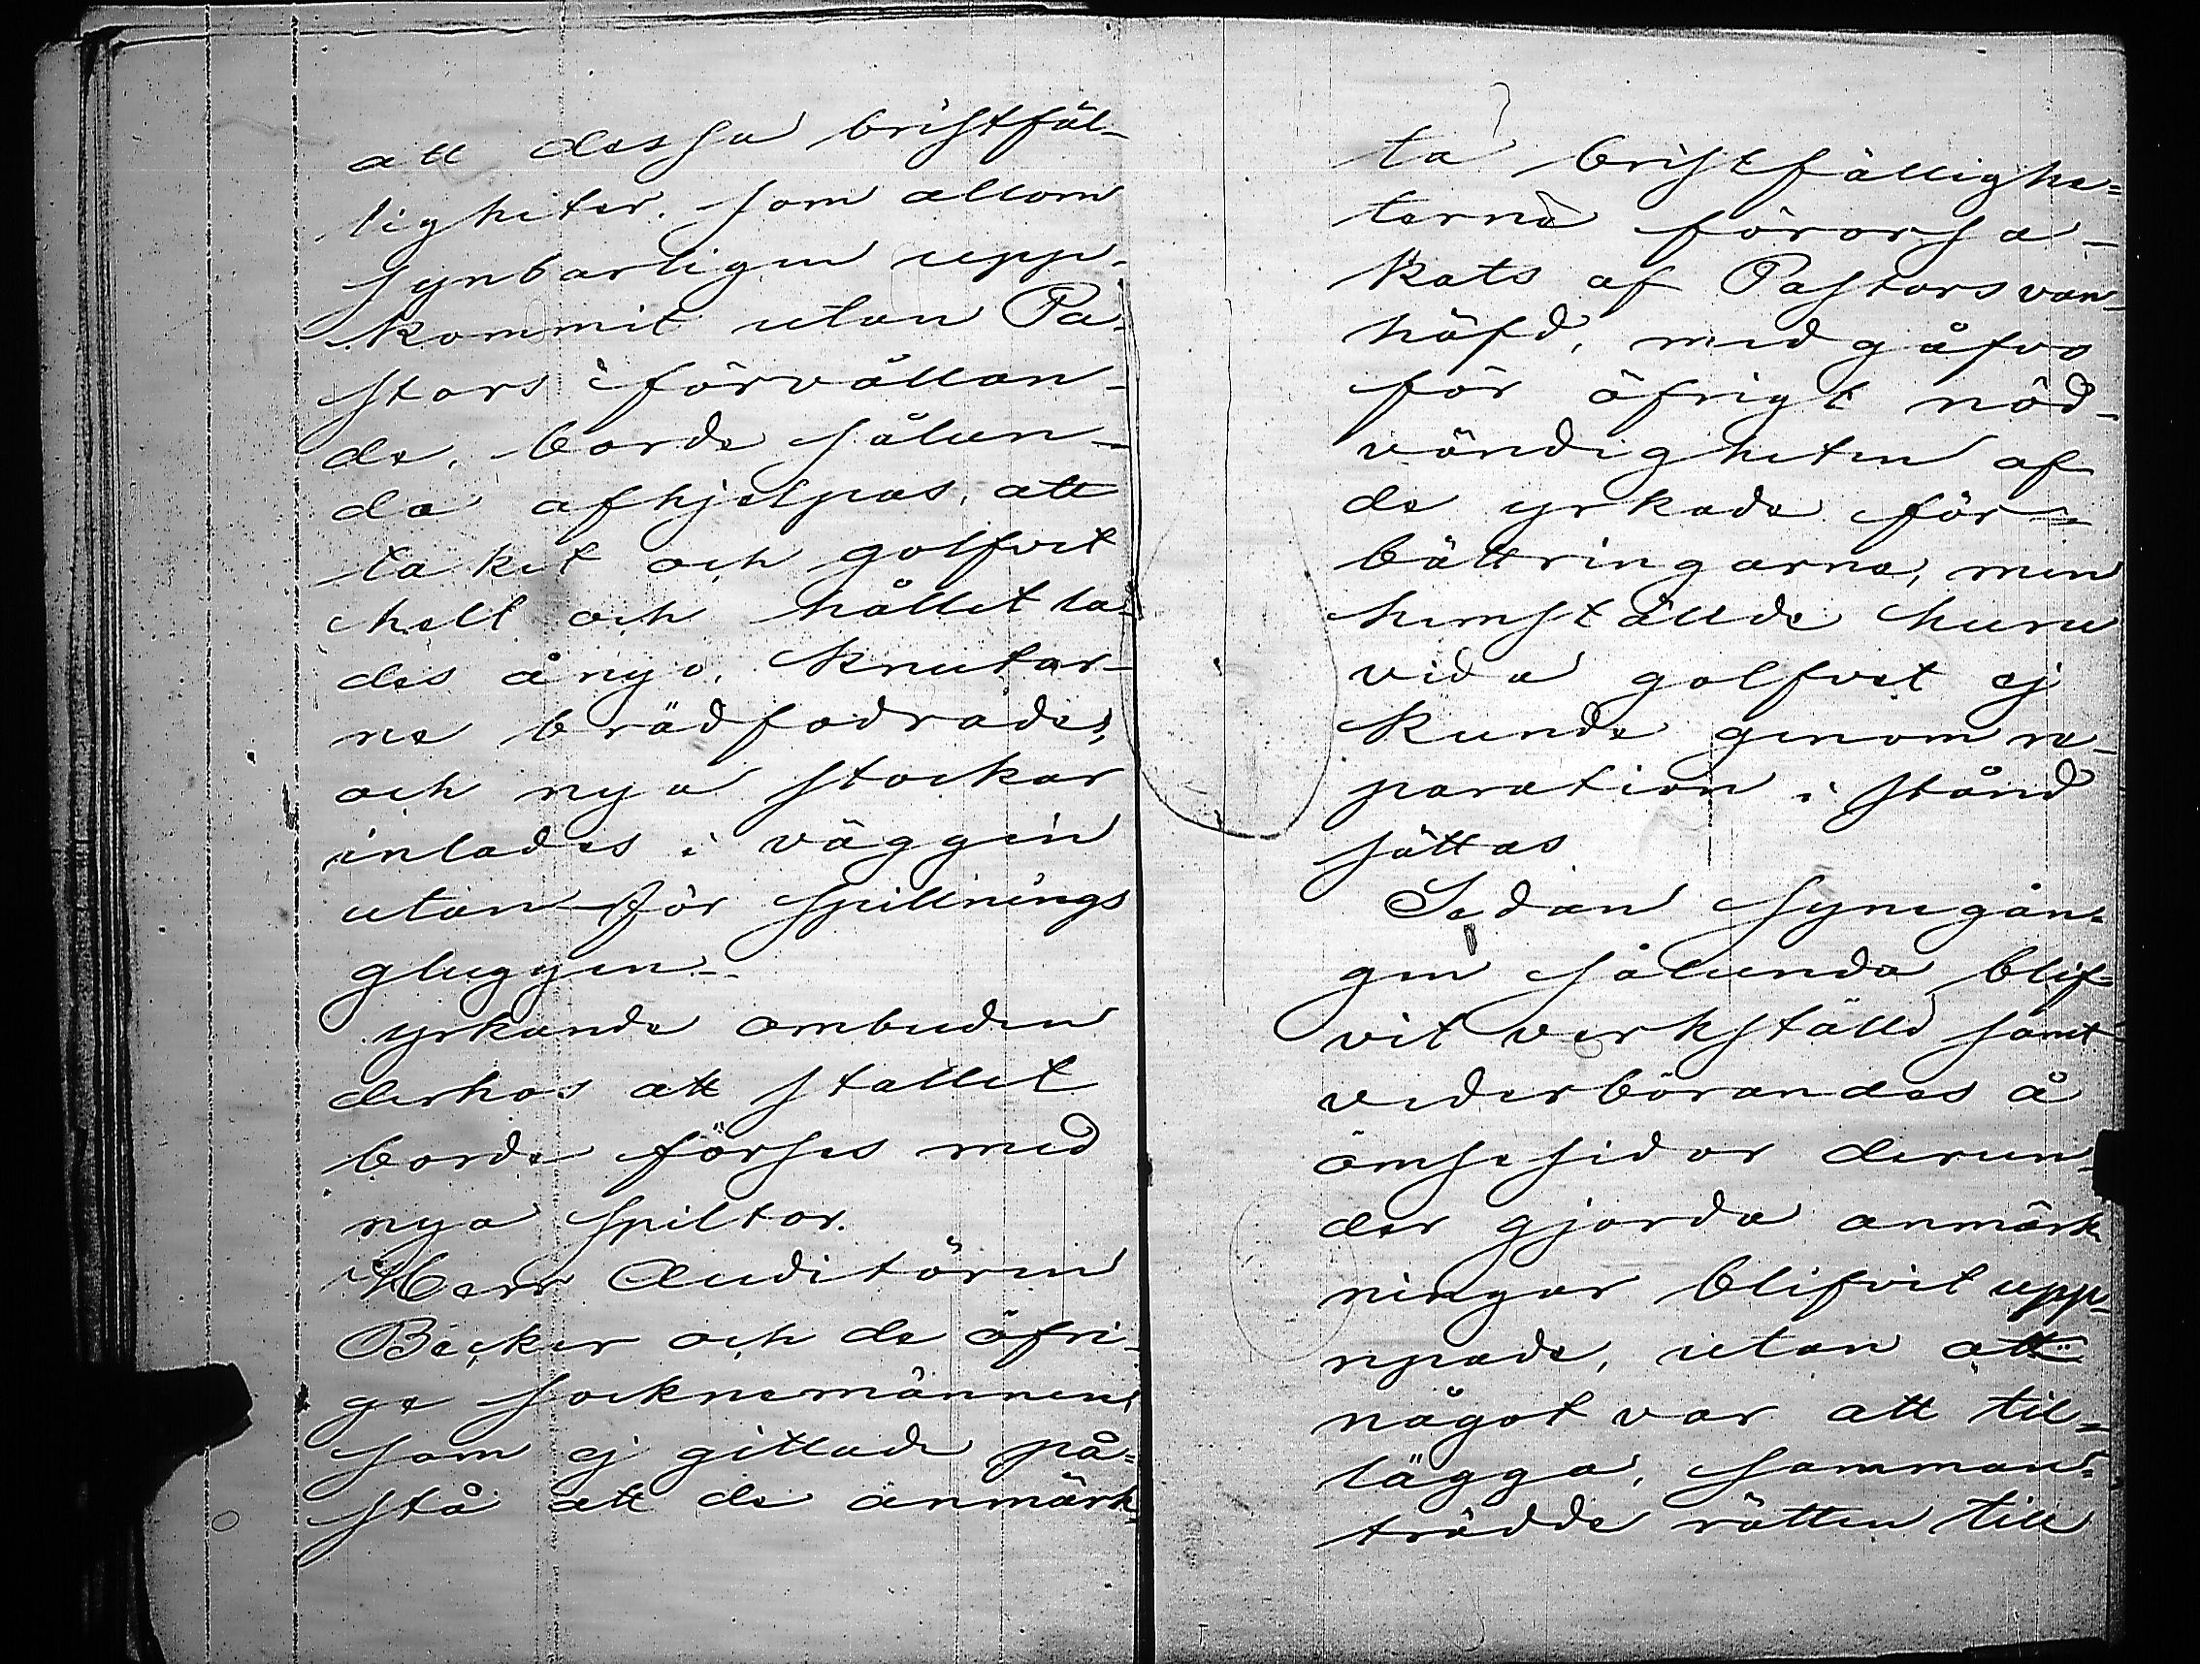 att dessa bristfäl-
ligheter, som allom
synbarligen upp-
kommit utan Pa-
stors förvållan-
de, borde sålun-
da afhjelpas, att
taket och golfvet
helt och hållet la-
des å nyo, knutar-
ne brädfodrades,
och nya stockar
inlades i väggen
utanför spillnings
gluggen.
yrkande ombuden
derhos att stallet
borde förses med
nya spiltor.
Herr Auditören
Becker och de öfri-
ge socknemännen
som ej gittade på-
stå att de anmärk-
ta bristfällighe-
terna förorsa-
kats af Pastors van-
häfd, medgåfvo
för öfrigt nöd-
vändigheten af
de yrkade för-
bättringarna, men
hemställde huru
vida golfvet ej
kunde genom re-
paration i stånd
sättas
Sedan synegån-
gen sålunda blif-
vit verkställd samt
vederbörandes å
ömse sidor derun-
der gjorda anmärk-
ningar blifvit upp-
repade, utan att
något var att til-
lägga, samman-
trädde rätten till